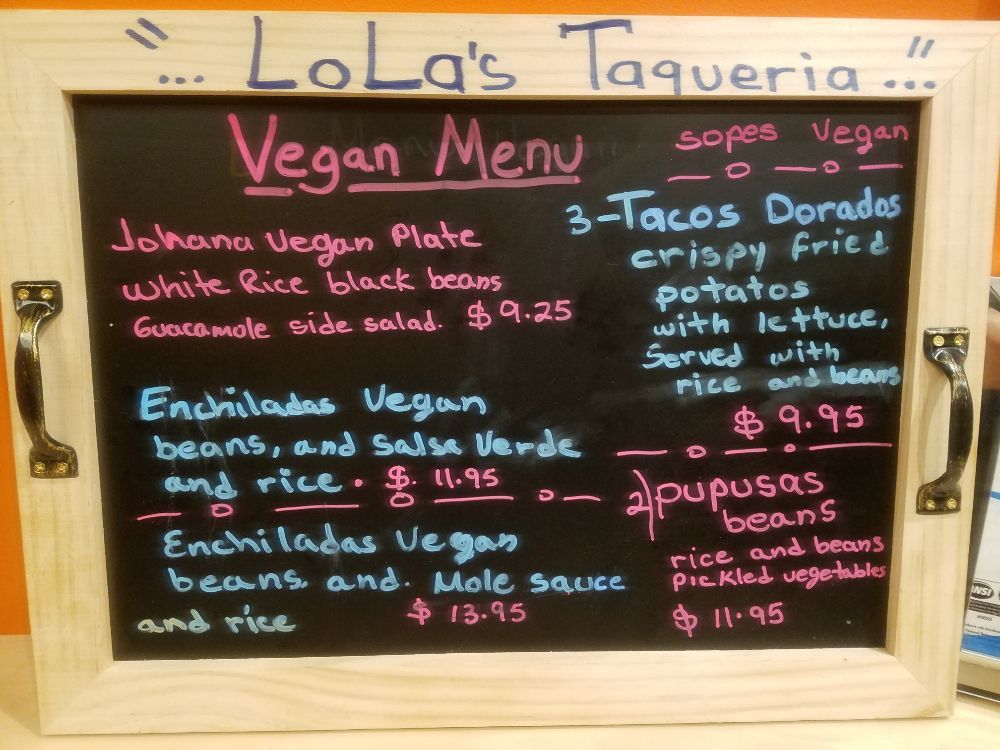 "... LoLa's Taqueria ..."
Vegan Menu
Johana Vegan Plate
White Rice black beans
Guacamole side salad. $ 9.25
Enchiladas Vegan
beans, and Salsa Verde
and rice. $. 11.95
Enchiladas Vegan
beans, and. Mole sauce
and rice $ 13.95
sopes vegan
3-Tacos Dorados
crispy fried
potatos
with lettuce,
Served with
rice and beans
$ 9.95
2) pupusas
beans
rice and beans
pickled vegetables
$ 11.95